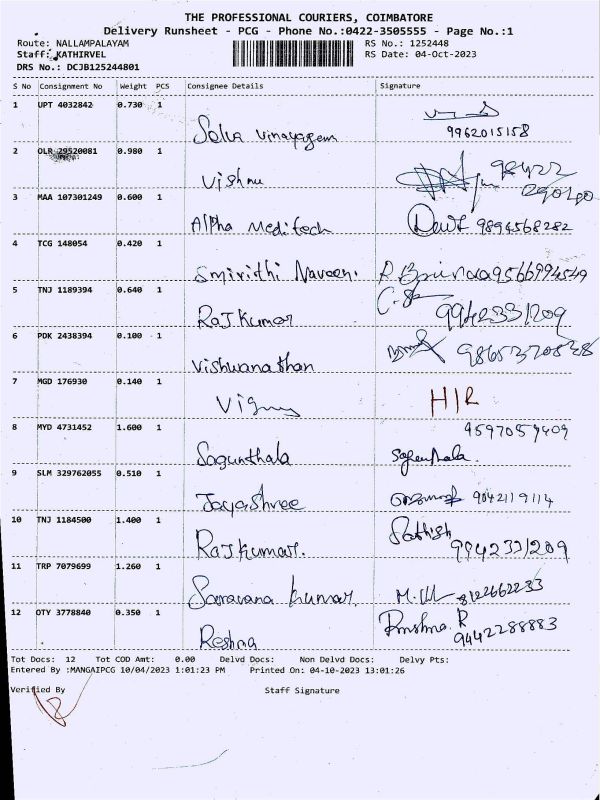 THE PROFESSIONAL COURIERS, COIMBATORE
Delivery Runsheet - PCG - Phone No.:0422-3505555 - Page No.:1
Route: NALLAMPALAYAM RS No.: 1252448
Staff: KATHIRVEL RS Date: 04-Oct-2023
DRS No.: DCJB125244801
S No Consignment No Weight PCS Consignee Details Signature
1 UPT 4032842 0.730 1
Selva Vinayagem 9962015158
2 OLR 29520081 0.980 1
Vishnu 98422
3 MAA 107301249 0.600 1
Alpha Meditech 9894568282
4 TCG 148054 0.420 1
Smirithi Naveen. 9566994549
5 TNJ 1189394 0.640 1
RaJkumar 9942331209
6 PDK 2438394 0.100 1
Vishwanathan
7 MGD 176930 0.140 1
HIR
8 MYD 4731452 1.600 1 9597057409
Sagunthala
9 SLM 329762055 0.510 1
Jayashree 9042119114
10 TNJ 1184500 1.400 1 Sathish
RaJkumar. 9942331209
11 TRP 7079699 1.260 1
Saravana kumar. 8122662233
12 OTY 3778840 0.350 1
Reshna 9442288883
Tot Docs: 12 Tot COD Amt: 0.00 Delvd Docs: Non Delvd Docs: Delvy Pts:
Entered By :MANGAIPCG 10/04/2023 1:01:23 PM Printed On: 04-10-2023 13:01:26
Verified By Staff Signature